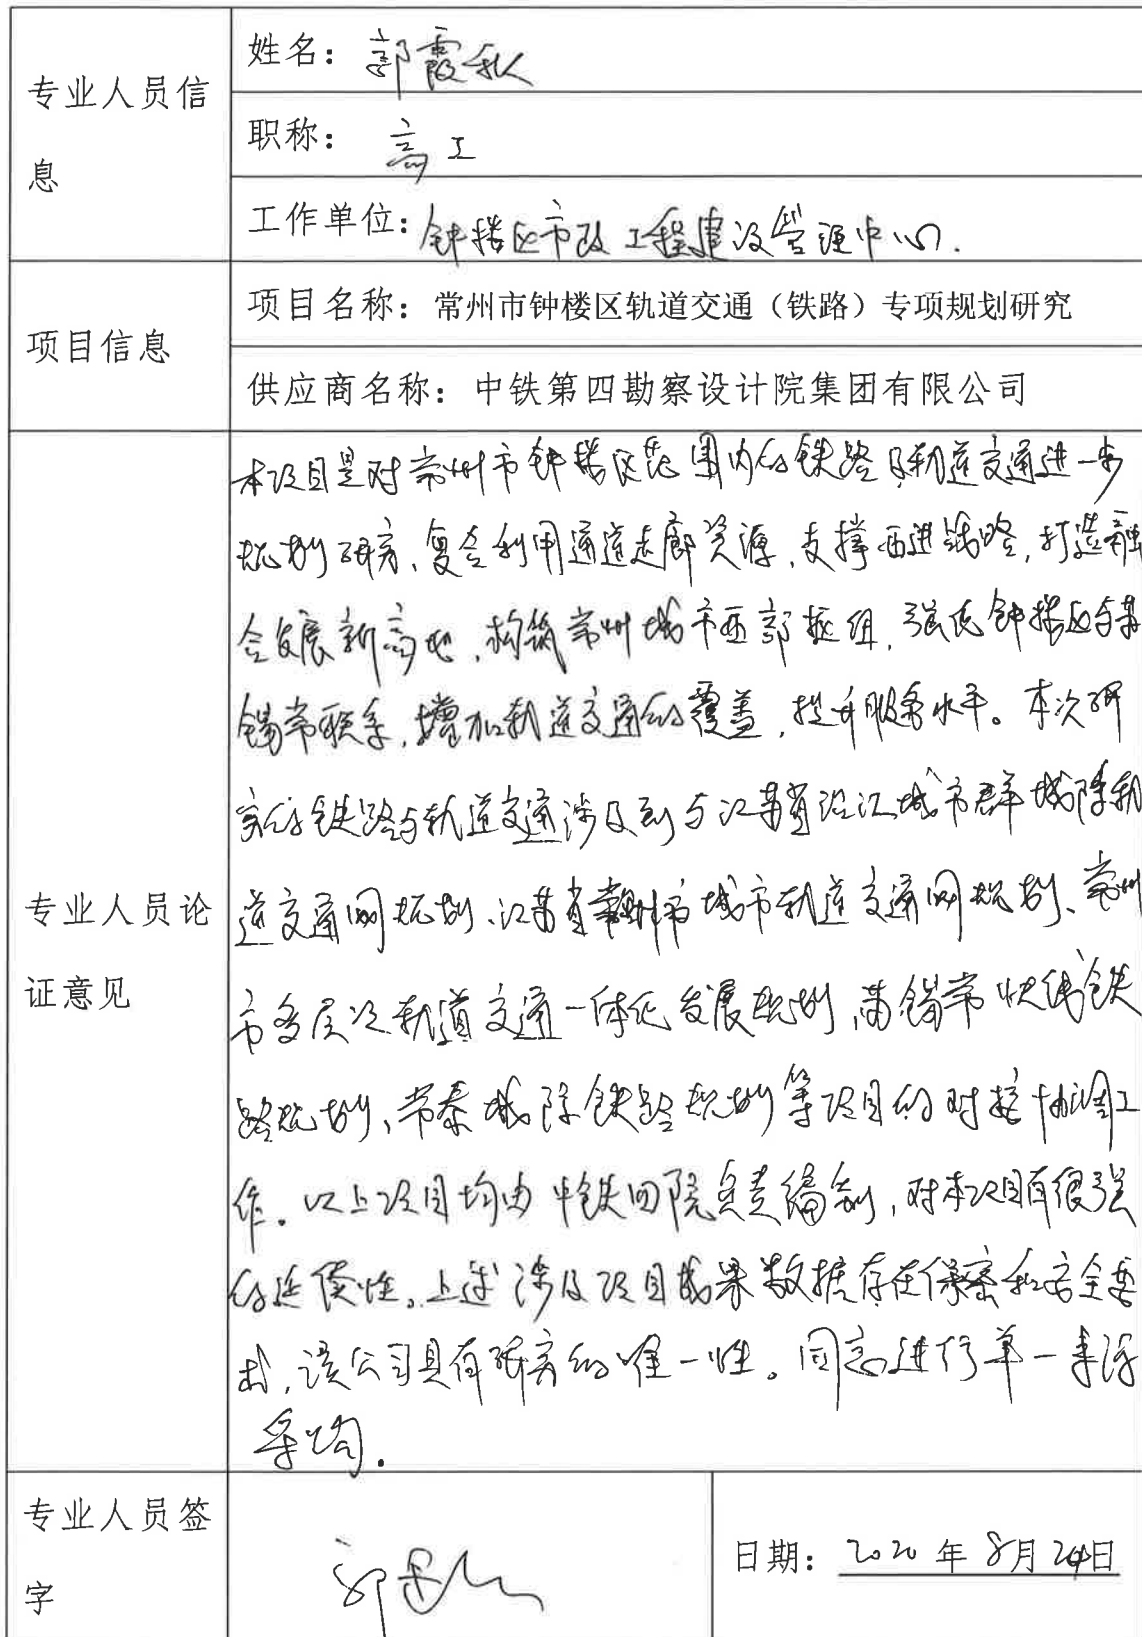 专业人员信息
姓名：郭霞秋
职称：高工
工作单位：钟楼区市政工程建设管理中心.
项目信息
项目名称：常州市钟楼区轨道交通（铁路）专项规划研究
供应商名称：中铁第四勘察设计院集团有限公司
专业人员论证意见
本项目是对常州市钟楼区范围内的铁路及轨道交通进一步
规划研究，复合利用通道走廊资源，支撑西进战略，打造融
合发展新高地，构筑常州城市西部枢纽，强化钟楼区与苏
锡常联系，增加轨道交通的覆盖，提升服务水平。本次研
究的铁路与轨道交通涉及到与江苏省沿江城市群城际轨
道交通网规划、江苏省常州市城市轨道交通网规划、常州
市多层次轨道交通一体化发展规划，苏锡常快线铁
路规划、常泰城际铁路规划等项目的对接协调工
作。以上项目均由中铁四院负责编制，对本项目有很强
的延续性。上述涉及项目成果数据存在保密和安全要
求，该公司具有研究的唯一性。同意进行单一来源
采购.
专业人员签字
日期：2020年8月24日